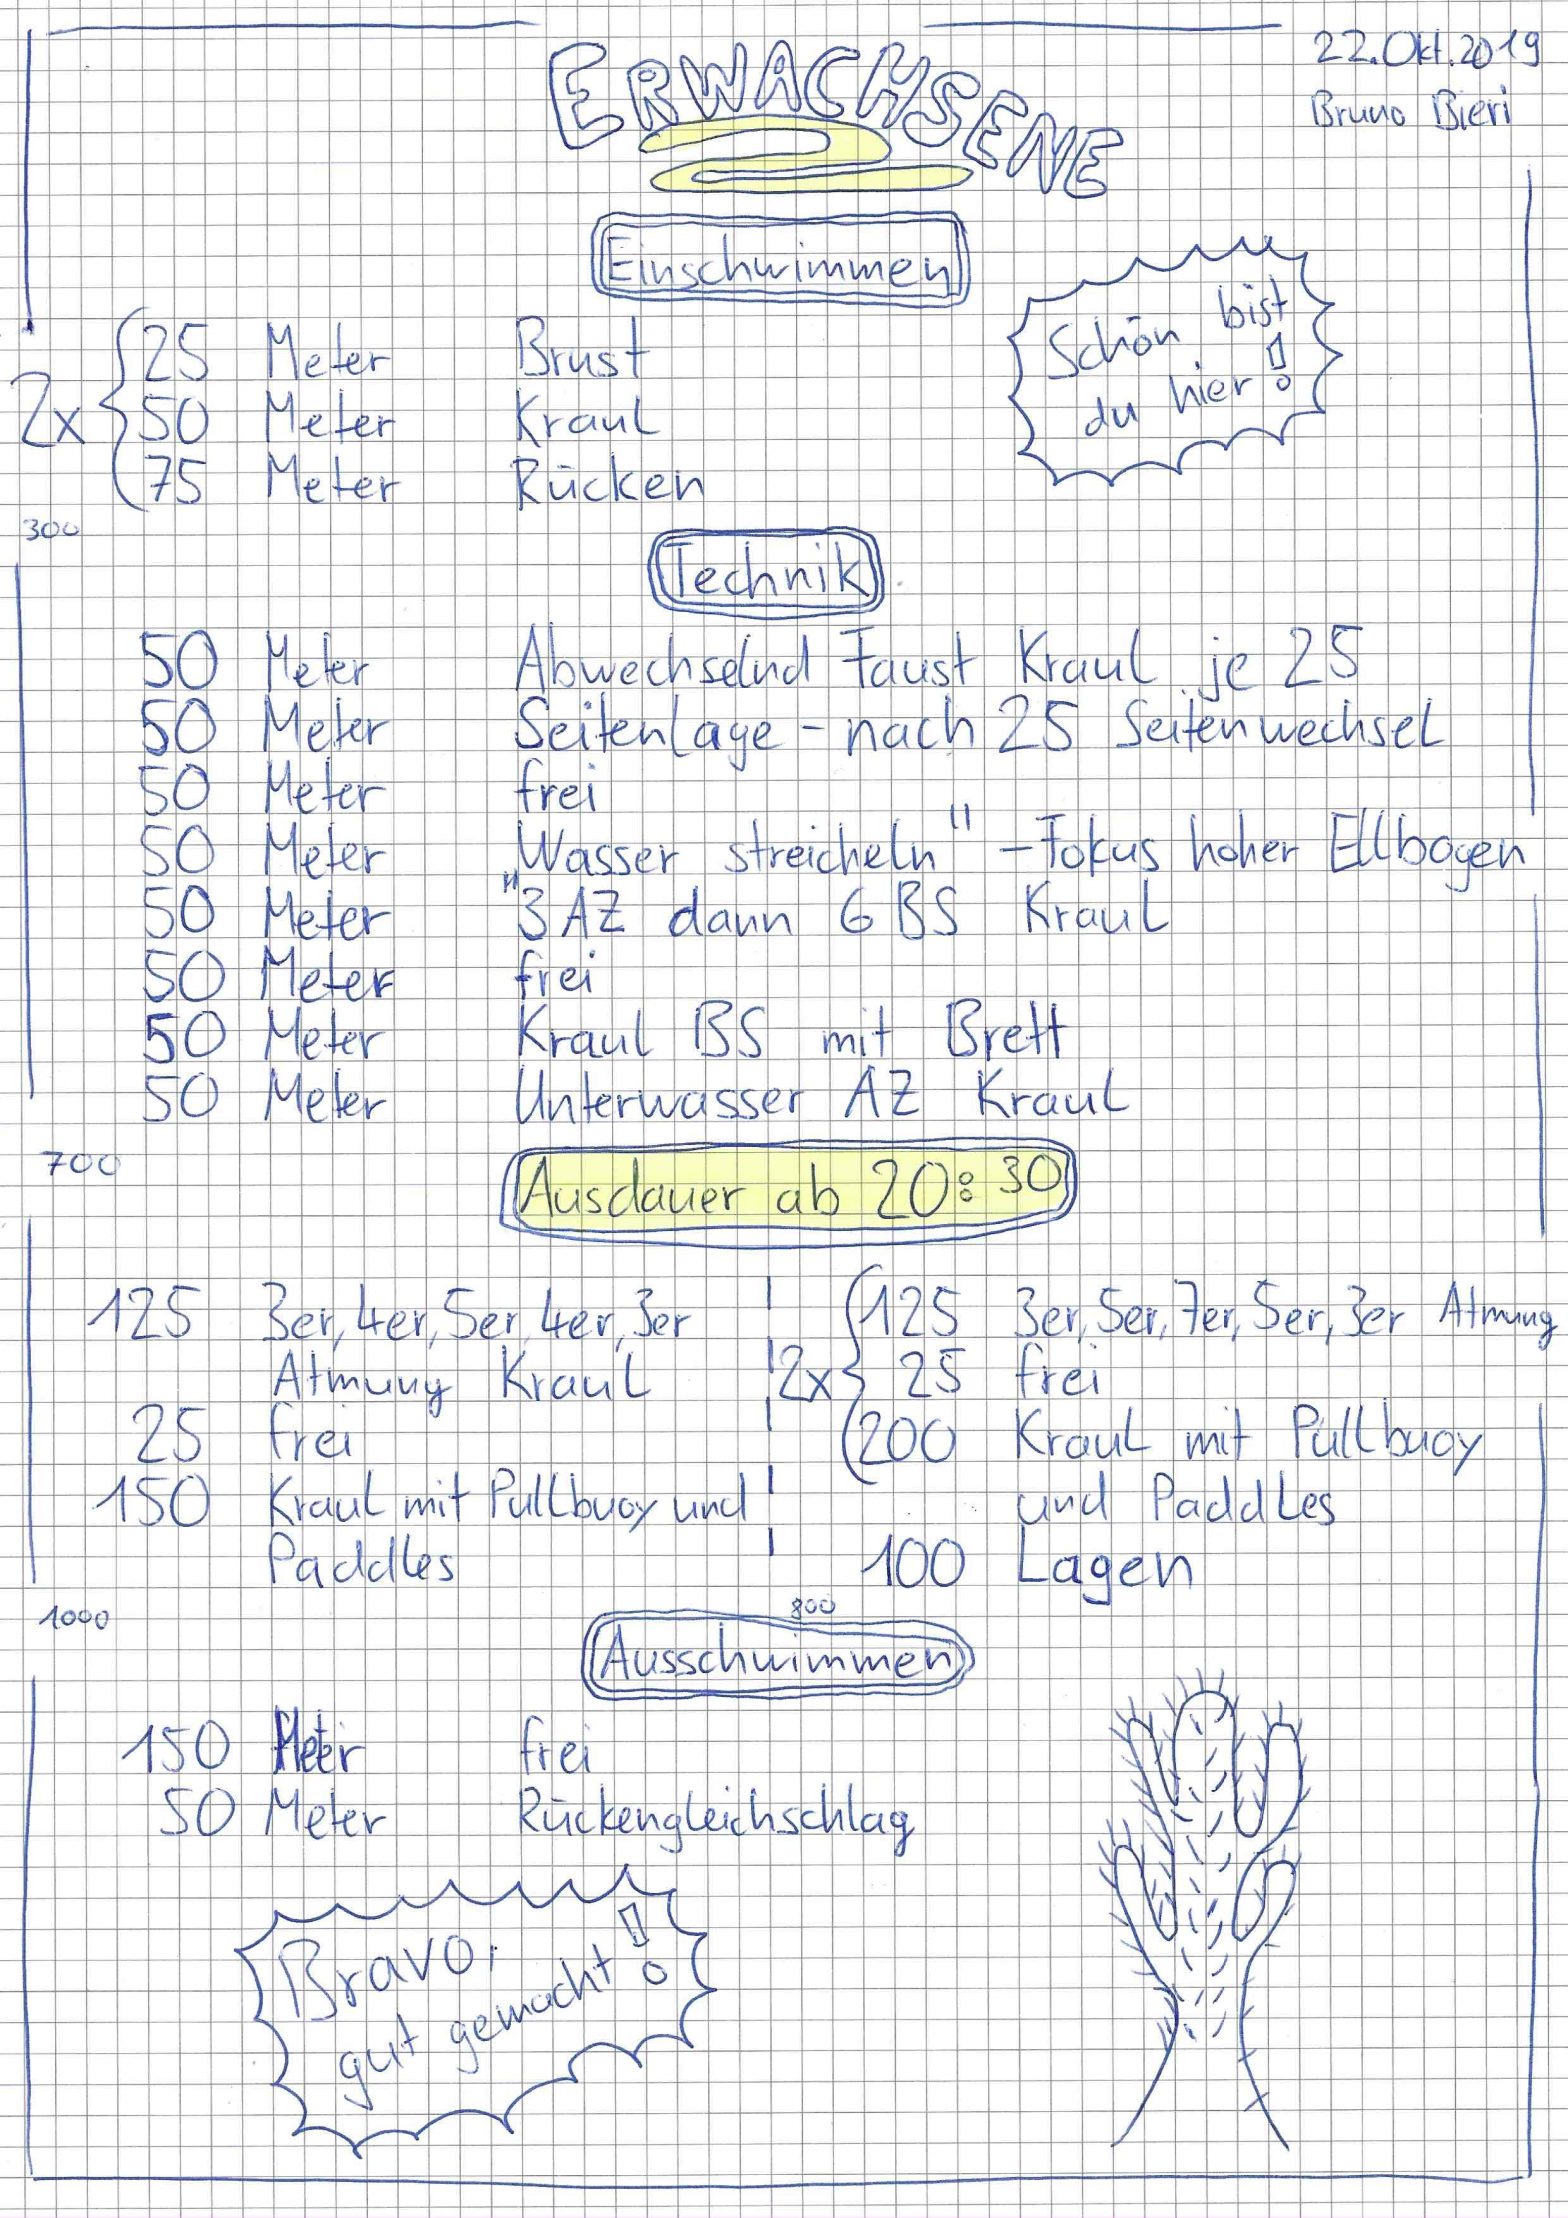 22. Okt. 2019
ERWACHSENE
Bruno Bieri
Einschwimmen
Schön bist
du hier!
2x
25 Meter Brust
50 Meter Kraul
75 Meter Rücken
300
Technik
50 Meter Abwechselnd Faust Kraul je 25
50 Meter Seitenlage - nach 25 Seitenwechsel
50 Meter frei
50 Meter „Wasser streicheln" - Fokus hoher Ellbogen
50 Meter "3 AZ dann 6 BS Kraul
50 Meter frei
50 Meter Kraul BS mit Brett
50 Meter Unterwasser AZ Kraul
700
Ausdauer ab 20:30
125 3er, 4er, 5er, 4er, 3er
Atmung Kraul
25 frei
150 Kraul mit Pullbuoy und
Paddles
2x
125 3er, 5er, 7er, 5er, 3er Atmung
25 frei
200 Kraul mit Pullbuoy
und Paddles
100 Lagen
1000
800
Ausschwimmen
150 Meter frei
50 Meter Rückengleichschlag
Bravo,
gut gemacht!